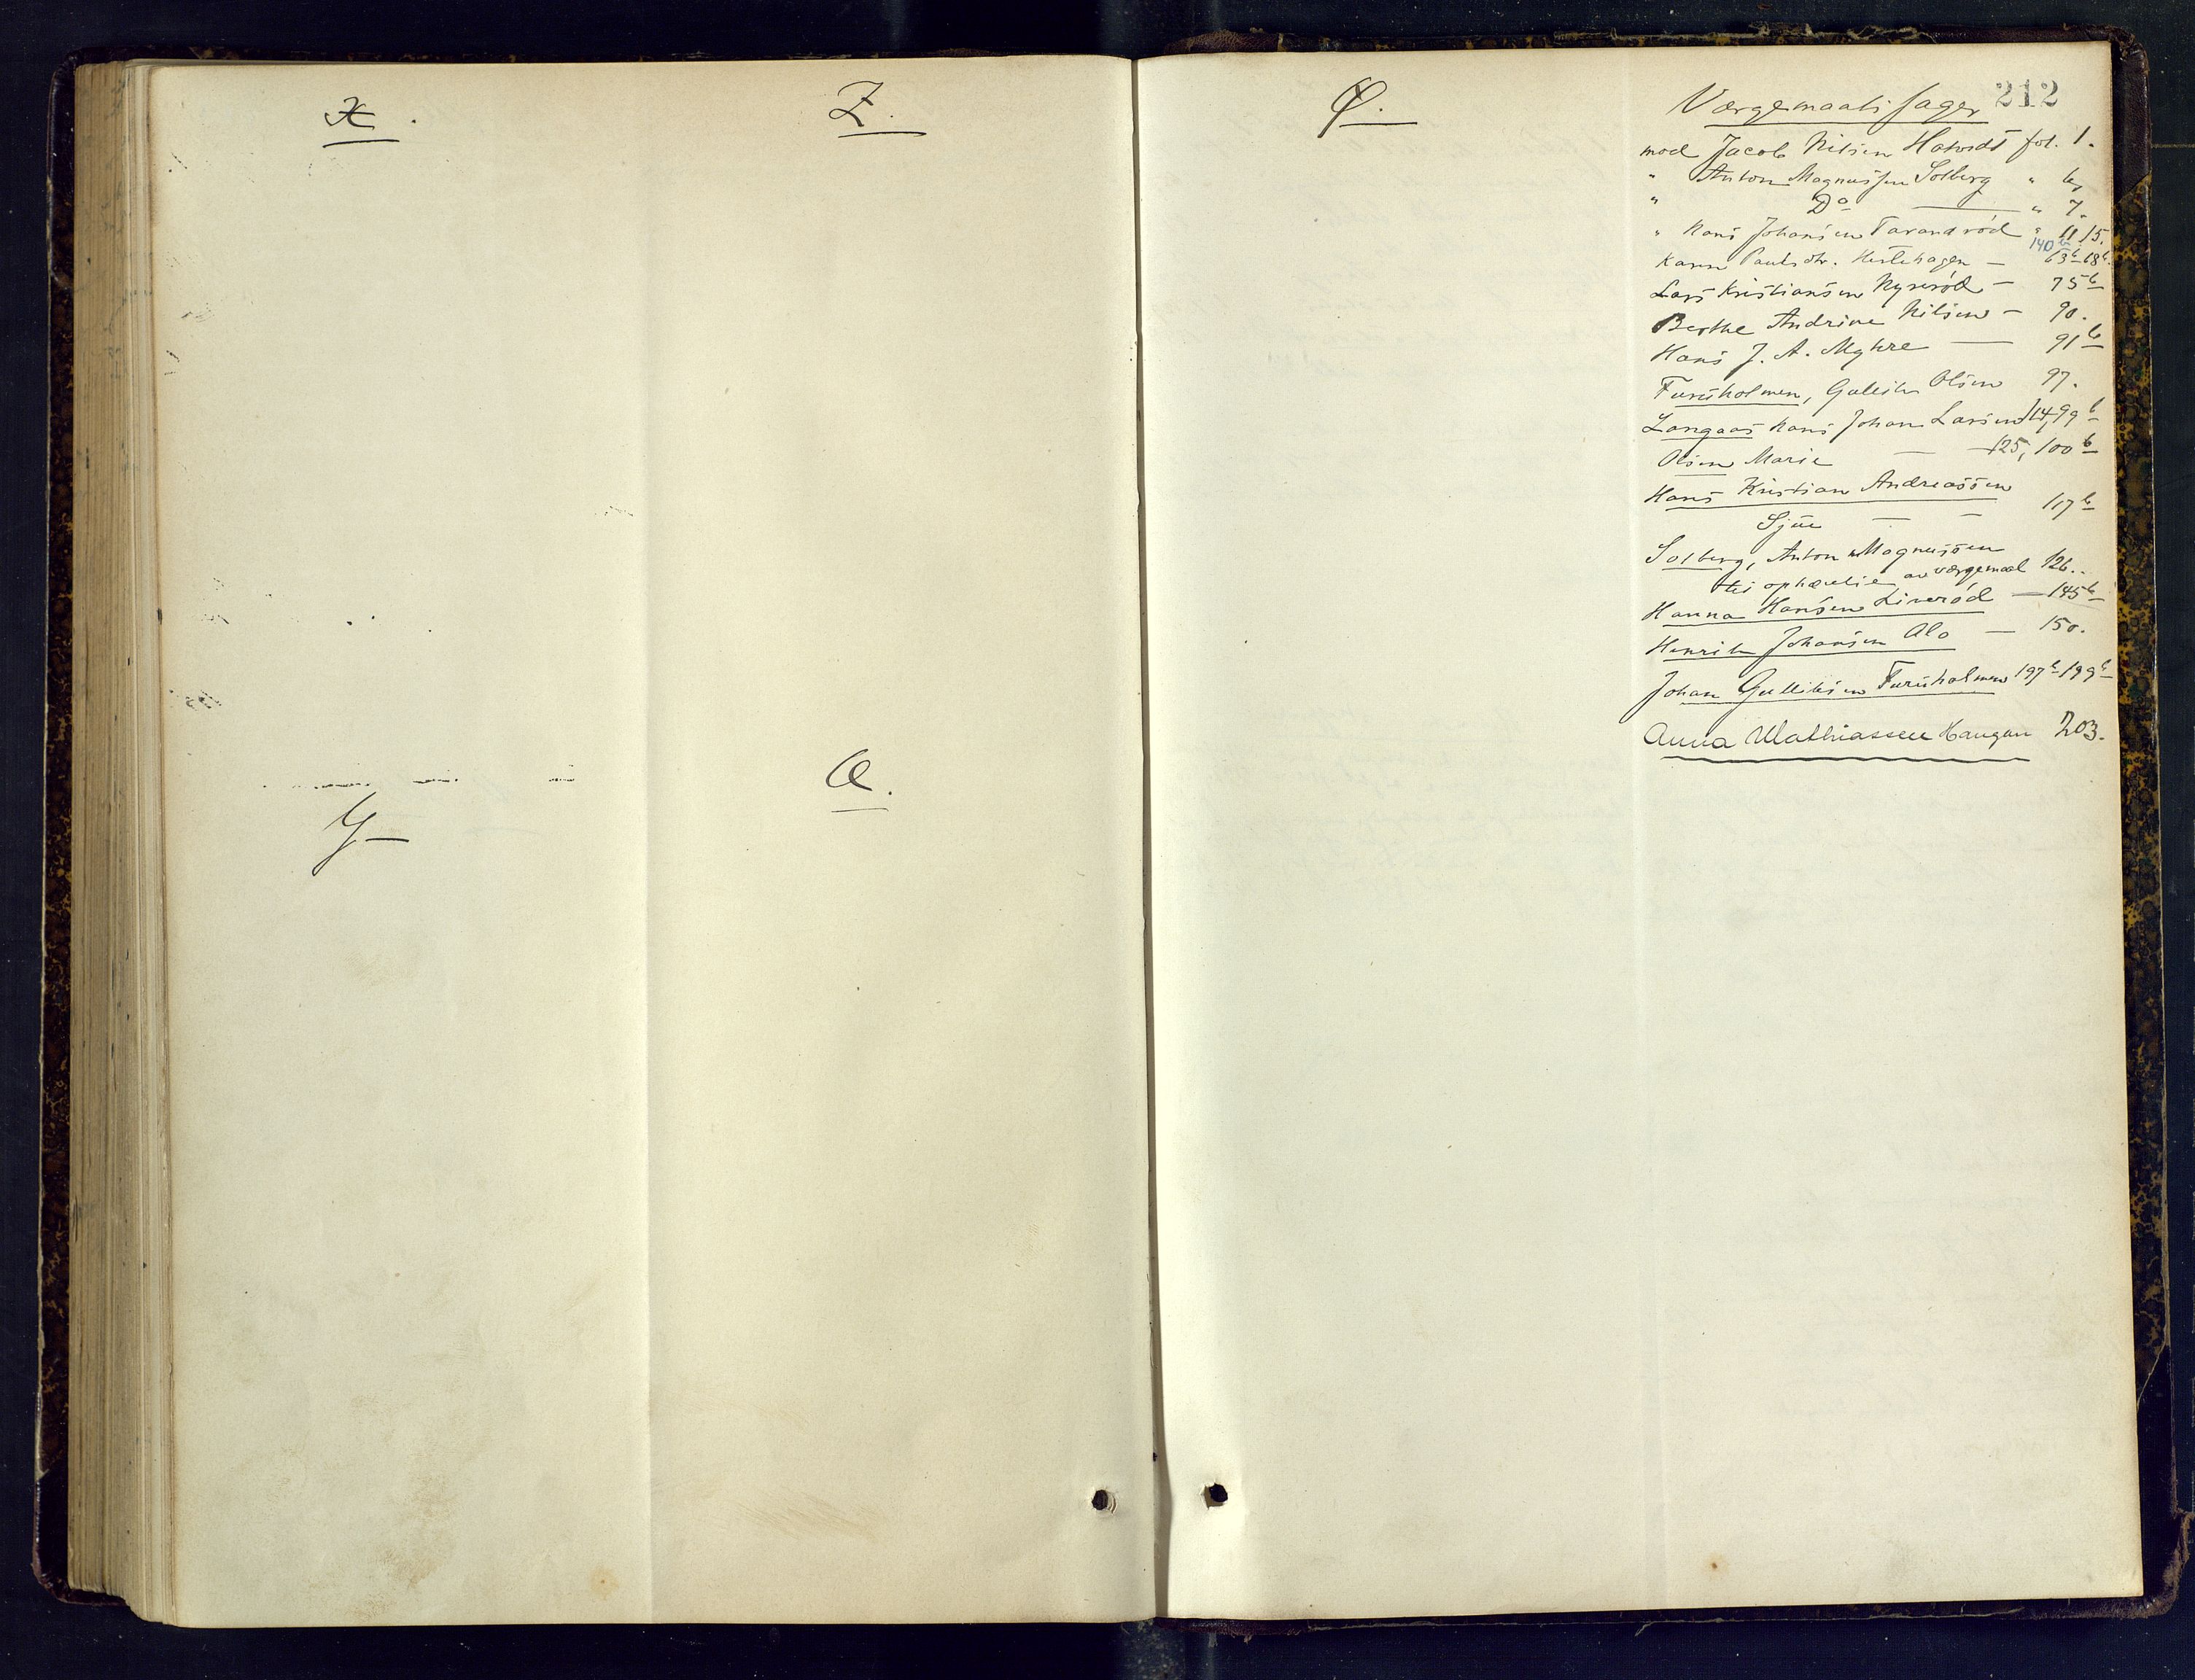 X.
Y
Z.
Æ.
Ø.
212
Værgemaals sager
mod Jacob Nilsen fol. 1.
" Anton Magnussen Solberg "
" Do " 7.
" Hans Johansen Tarandrød " 11, 15.
140b
Karen Paulsdtr. Hestehagen — 63b 68b
Lars Kristiansen Nyrerød — 75b
Berthe Andrine Nilsen — 90.
Hans J. A. Myhre — 91b
Furuholmen, Gullik Olsen 97.
Langaas Hans Johan Larsen 114, 99b
Olsen Marie — 125, 100b
Hans Kristian Andreassen
Sjue — — 117b
Solberg, Anton Magnussen
til ophævelse av værgemaal 126.
Hanna Hansen Liverød — 145b
Henrik Johansen Alo — 150.
Johan Gulliksen Furuholmen 197b 199b
Anna Mathiassen Haugan 203.